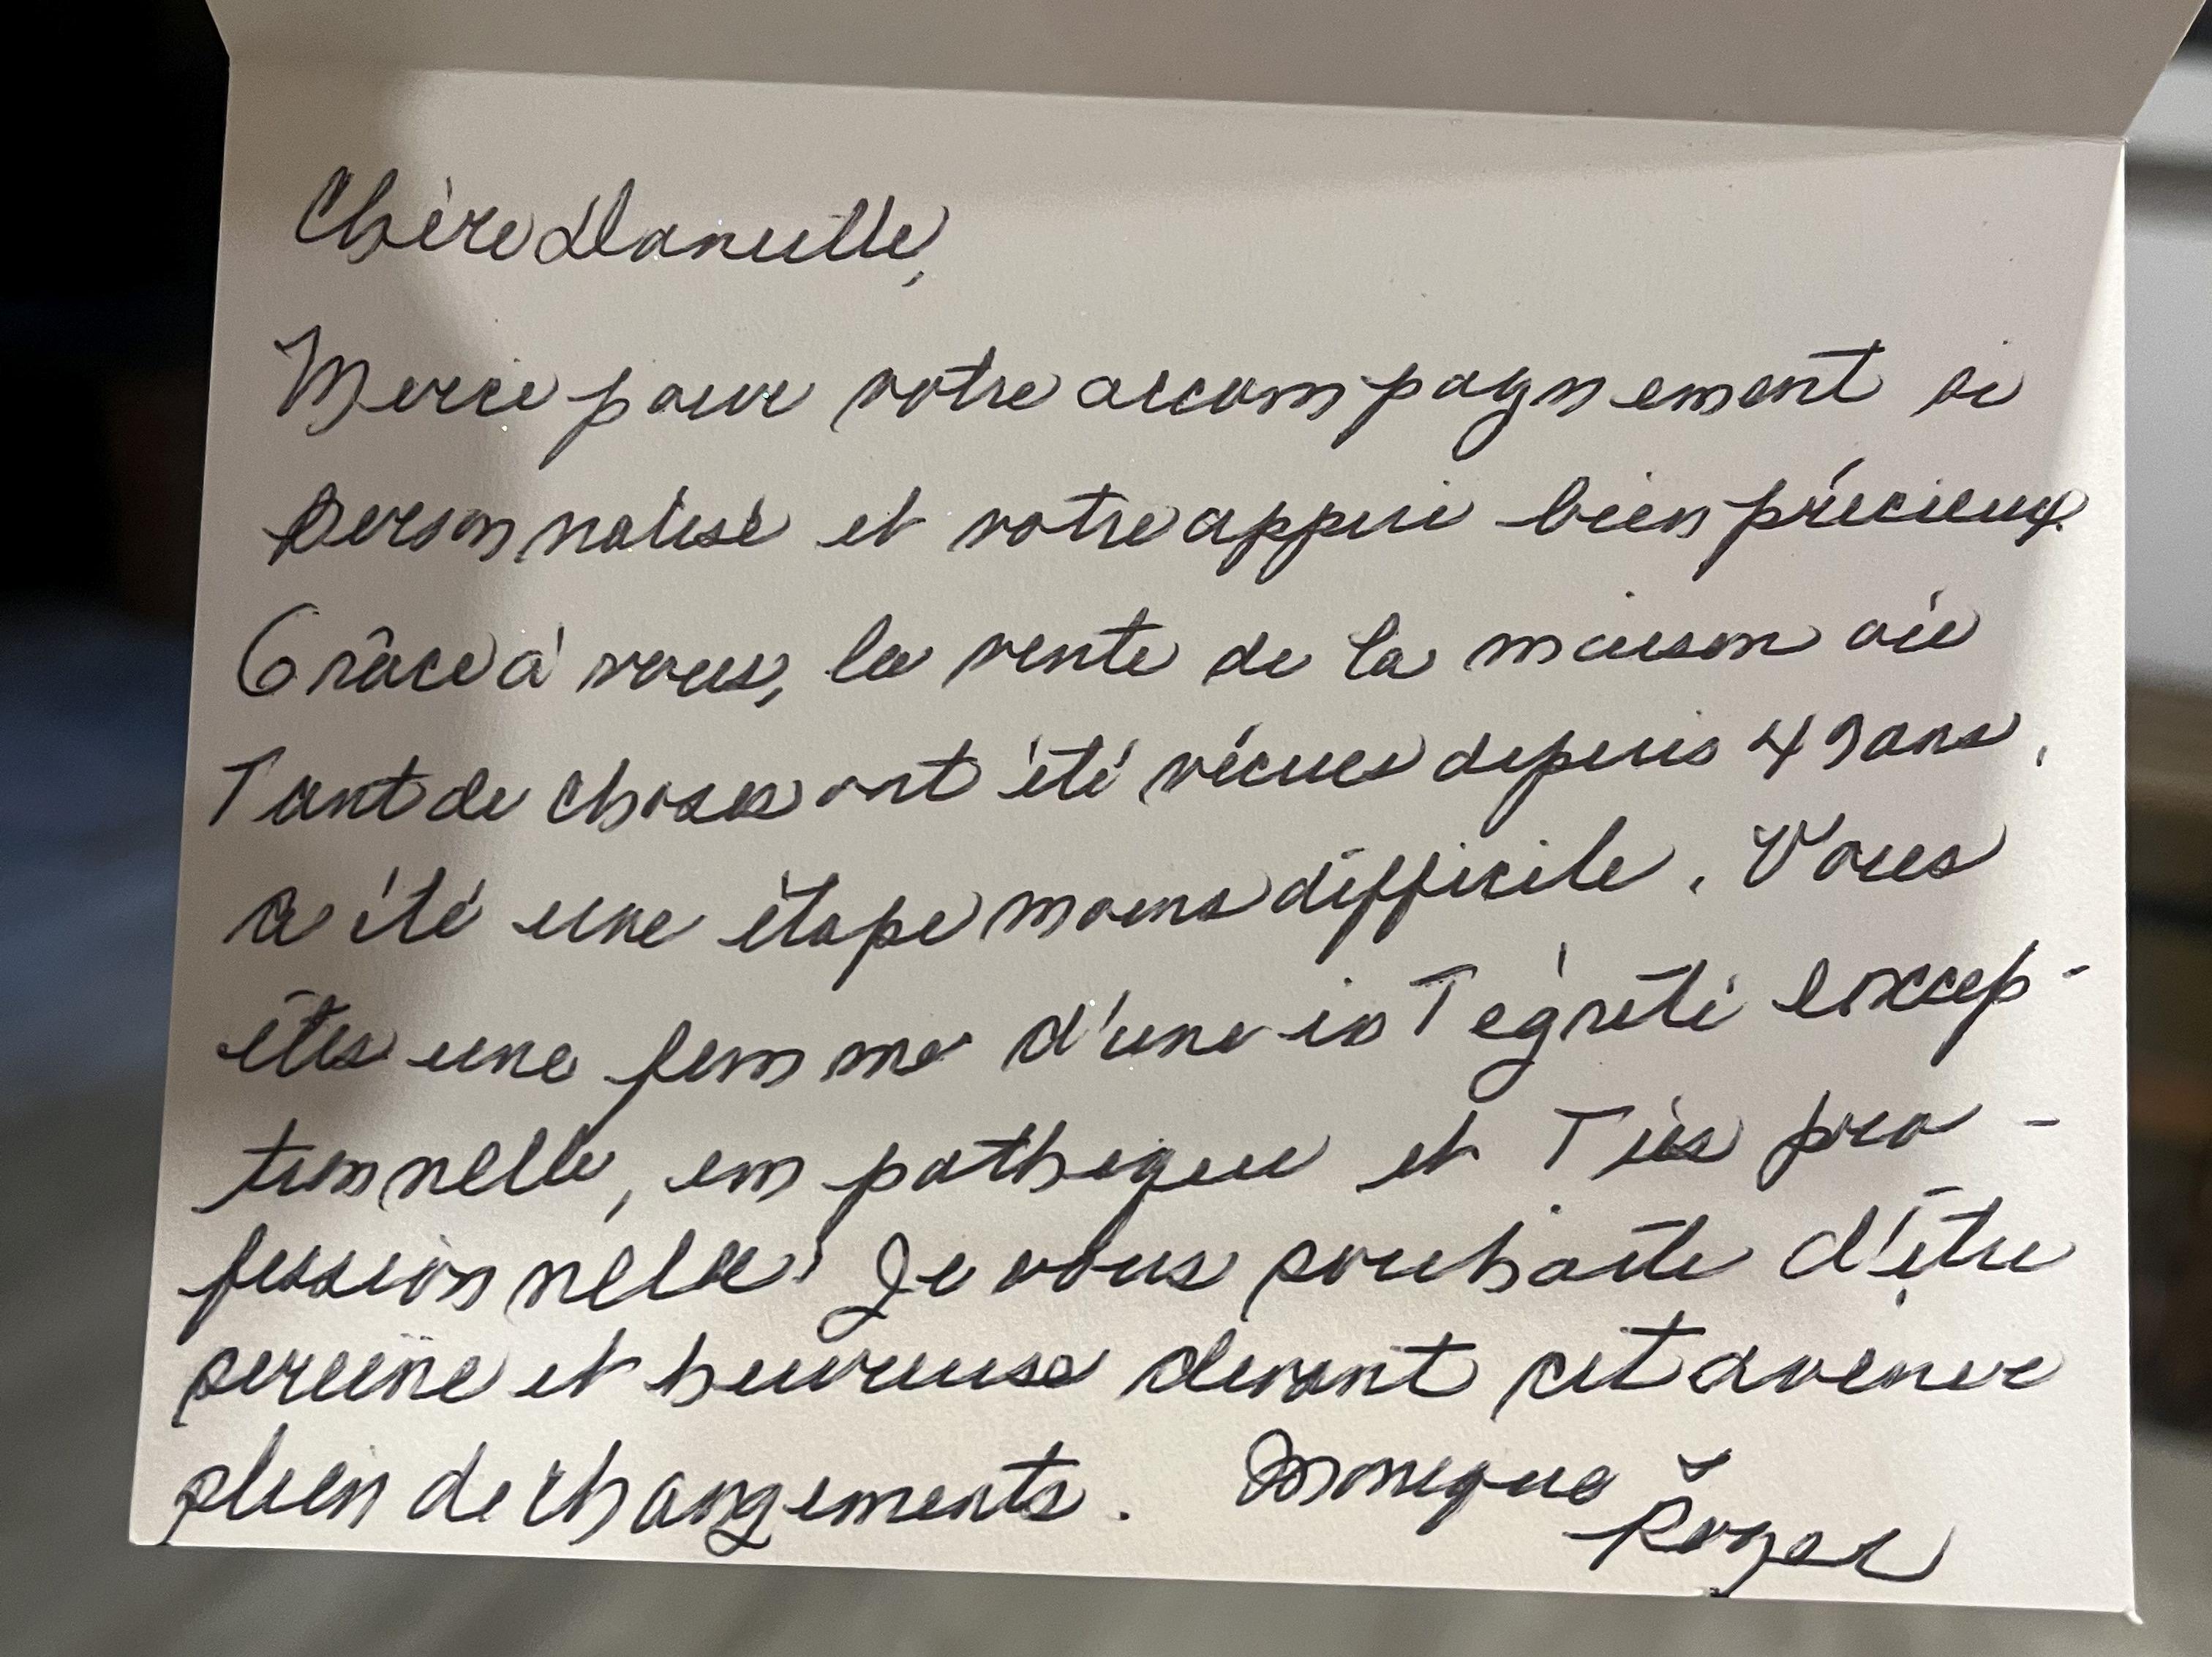 Chère Danielle,
Merci pour votre accompagnement si
personnalisé et votre appui bien précieux.
Grâce à vous, la vente de la maison où
tant de choses ont été vécues depuis 49 ans,
a été une étape moins difficile. Vous
êtes une femme d'une intégrité excep-
tionnelle, empathique et très pro-
fessionnelle! Je vous souhaite d'être
sereine et heureuse devant cet avenir
plein de changements. Monique &
Roger